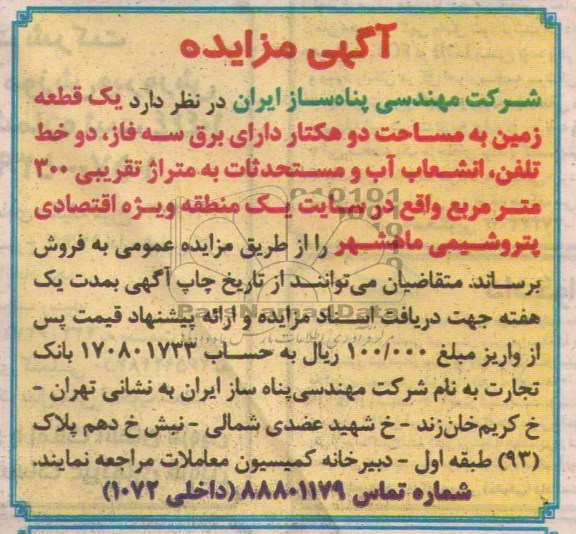 آگهی مزایده
شرکت مهندسی پناه‌ساز ایران در نظر دارد یک قطعه
زمین به مساحت دو هکتار دارای برق سه فاز، دو خط
تلفن، انشعاب آب و مستحدثات به متراژ تقریبی ۳۰۰
متر مربع واقع در سایت یک منطقه ویژه اقتصادی
پتروشیمی ماهشهر را از طریق مزایده عمومی به فروش
برساند. متقاضیان می‌توانند از تاریخ چاپ آگهی بمدت یک
هفته جهت دریافت اسناد مزایده و ارائه پیشنهاد قیمت پس
از واریز مبلغ ۱۰۰/۰۰۰ ریال به حساب ۱۷۰۸۰۱۷۳۳ بانک
تجارت به نام شرکت مهندسی پناه ساز ایران به نشانی تهران -
خ کریم‌خان‌زند - خ شهید عضدی شمالی - نبش خ دهم پلاک
(۹۳) طبقه اول - دبیرخانه کمیسیون معاملات مراجعه نمایند.
شماره تماس ۸۸۸۰۱۱۷۹ (داخلی ۱۰۷۲)
ParsNamadData